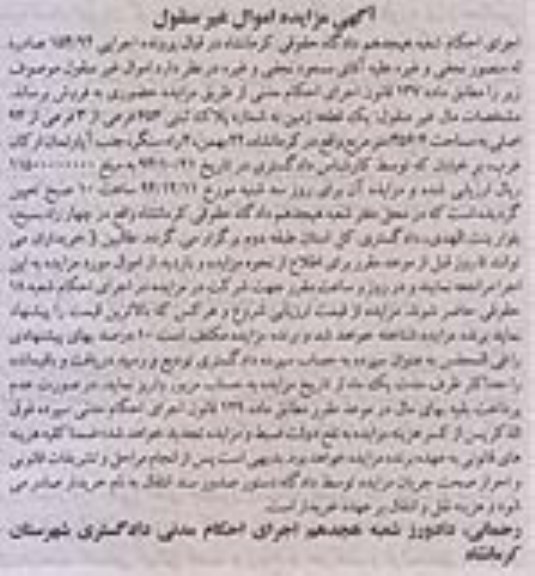 آگهی مزایده اموال غیر منقول
اجرای احکام شعبه هیجدهم دادگاه حقوقی کرمانشاه در قبال پرونده اجرایی صادره
له منصور و غیره علیه آقای مسعود و غیره در نظر دارد اموال غیر منقول موصوف
زیر را مطابق ماده ۱۳۷ قانون اجرای احکام مدنی از طریق مزایده حضوری به فروش برساند.
مشخصات مال غیر منقول: یک قطعه زمین به شماره پلاک ثبتی فرعی از ۳ فرعی از ۹۳
اصلی به مساحت متر مربع واقع در کرمانشاه، ۲۲ بهمن، جنب آپارتمان ارکان
غرب، بر خیابان که توسط کارشناس دادگستری در تاریخ به مبلغ
ریال ارزیابی شده و مزایده آن برای روز سه شنبه مورخ ساعت ۱۰ صبح تعیین
گردیده است که در محل دفتر شعبه هیجدهم دادگاه حقوقی کرمانشاه واقع در چهارراه بسیج،
بلوار بنت الهدی، دادگستری کل استان طبقه دوم برگزار می گردد. طالبین (خریداران می
توانند ۵ روز قبل از موعد مقرر برای اطلاع از نحوه مزایده و بازدید از اموال مورد مزایده به این
اجرا مراجعه نمایند و در روز و ساعت مقرر جهت شرکت در مزایده در اجرای احکام شعبه ۱۸
حقوقی حاضر شوند. مزایده از قیمت ارزیابی شروع و هر کس که بالاترین قیمت را پیشنهاد
نماید برنده مزایده شناخته خواهد شد و برنده مزایده مکلف است ۱۰ درصد بهای پیشنهادی
را فی المجلس به عنوان سپرده به حساب سپرده دادگستری تودیع و رسید دریافت و باقیمانده
را حداکثر ظرف مدت یک ماه از تاریخ مزایده به حساب مزبور واریز نماید. در صورت عدم
پرداخت بقیه بهای مال در موعد مقرر مطابق ماده ۱۲۹ قانون اجرای احکام مدنی سپرده فوق
الذکر پس از کسر هزینه مزایده به نفع دولت ضبط و مزایده تجدید خواهد شد؛ ضمنا کلیه هزینه
های قانونی به عهده برنده مزایده خواهد بود. بدیهی است پس از انجام مراحل و تشریفات قانونی
و احراز صحت جریان مزایده توسط دادگاه دستور صدور سند انتقال به نام خریدار صادر می
شود و هزینه نقل و انتقال بر عهده خریدار است.
رحمانی، دادورز شعبه هجدهم اجرای احکام مدنی دادگستری شهرستان
کرمانشاه